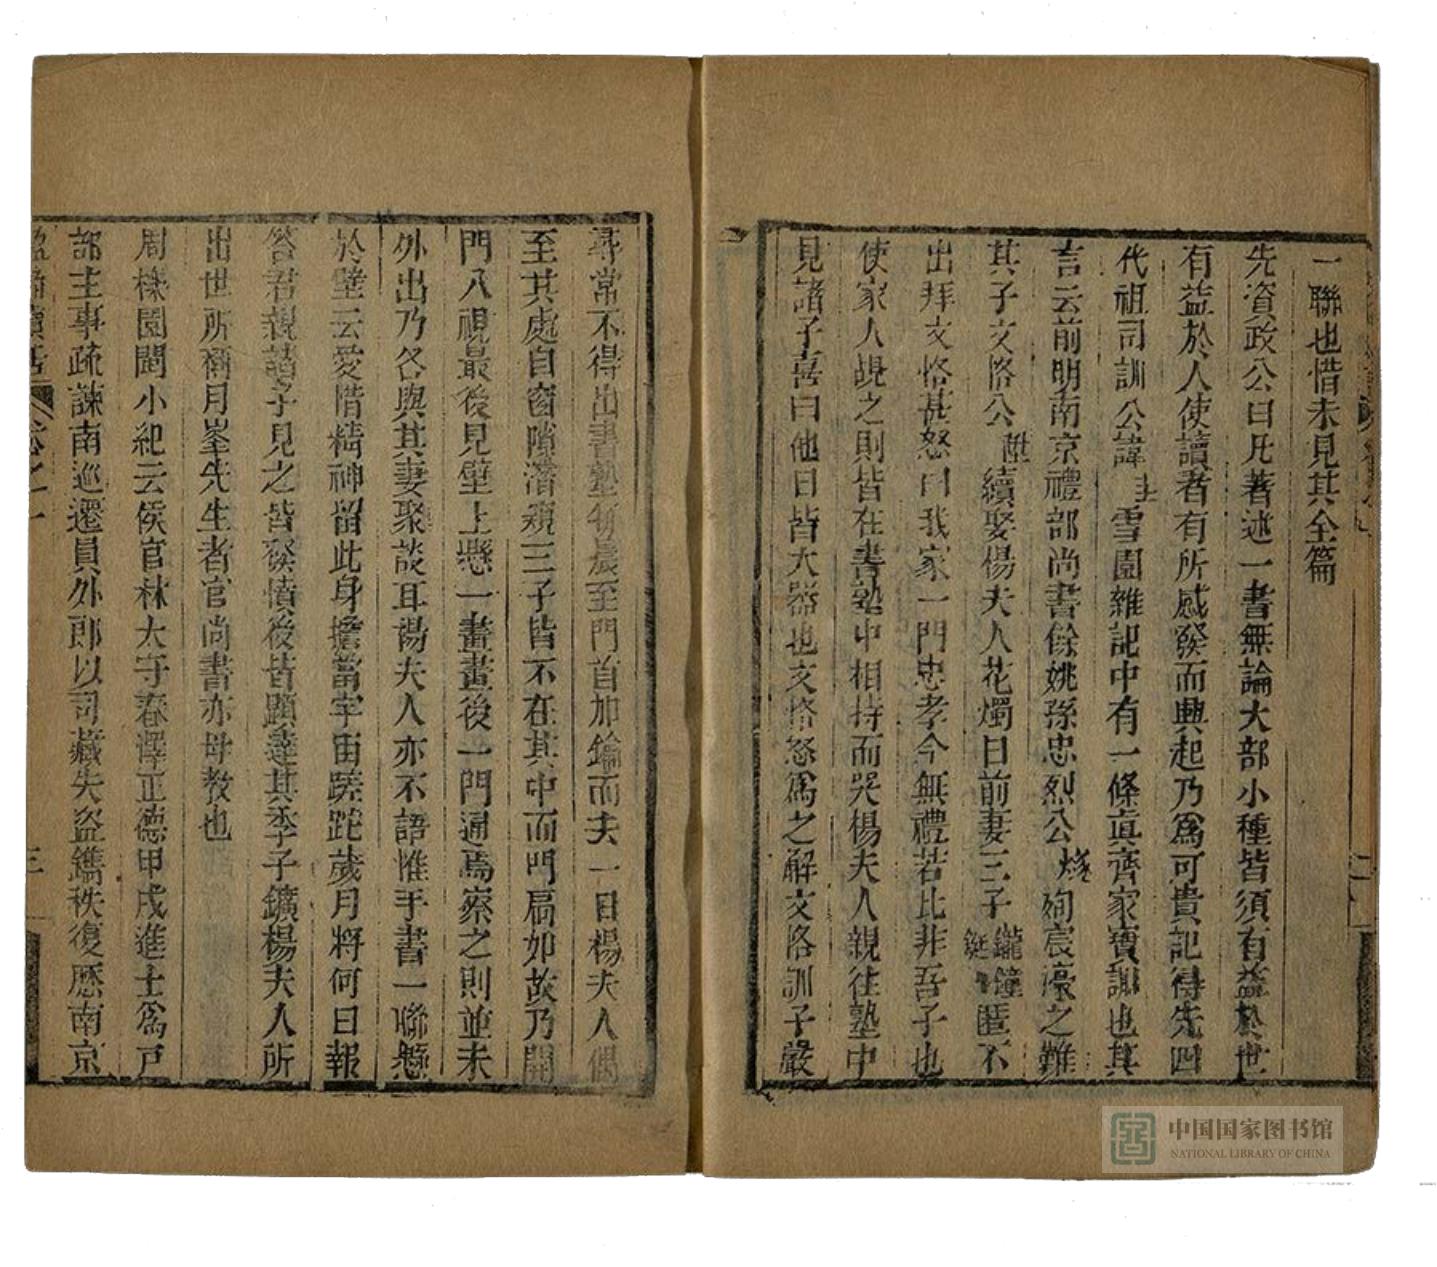 一聯也惜未見其全篇
先資政公曰凡著述一書無論大部小種皆須有益於世
有益於人使讀者有所感發而興起乃爲可貴記得先四
代祖司訓公諱圭雪園雜記中有一條眞齊家寶訓也其
言云前明南京禮部尚書餘姚孫忠烈公燧殉宸濠之難
其子文恪公陞續娶楊夫人花燭日前妻三子鑨鋌匿不
出拜文恪甚怒曰我家一門忠孝今無禮若此非吾子也
使家人覘之則皆在書塾中相持而哭楊夫人親往塾中
見諸子喜曰他日皆大器也文恪怒爲之解文恪訓子嚴
尋常不得出書塾每晨至門首加鑰而去一日楊夫人偶
至其處自窗隙潛窺三子皆不在其中而門扃如故乃開
門入視最後見壁上懸一畫畫後一門通焉察之則並未
外出乃各與其妻聚談耳楊夫人亦不語惟手書一聯懸
於壁云愛惜精神留此身擔當宇宙蹉跎歲月將何日報
答君親諸子見之皆發憤後皆顯達其季子鑛楊夫人所
出世所稱月峯先生者官尚書亦母教也
周櫟園閩小紀云侯官林太守春澤正德甲戌進士爲戸
部主事疏諫南巡遷員外郎以司藏失盜鐫秩復歷南京
卷之一
三
中国国家图书馆
NATIONAL LIBRARY OF CHINA